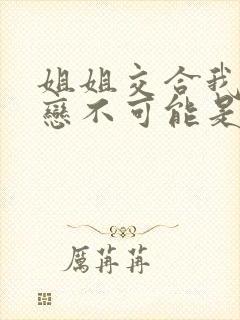 姐姐交合我
戀不可能是
厲苒苒